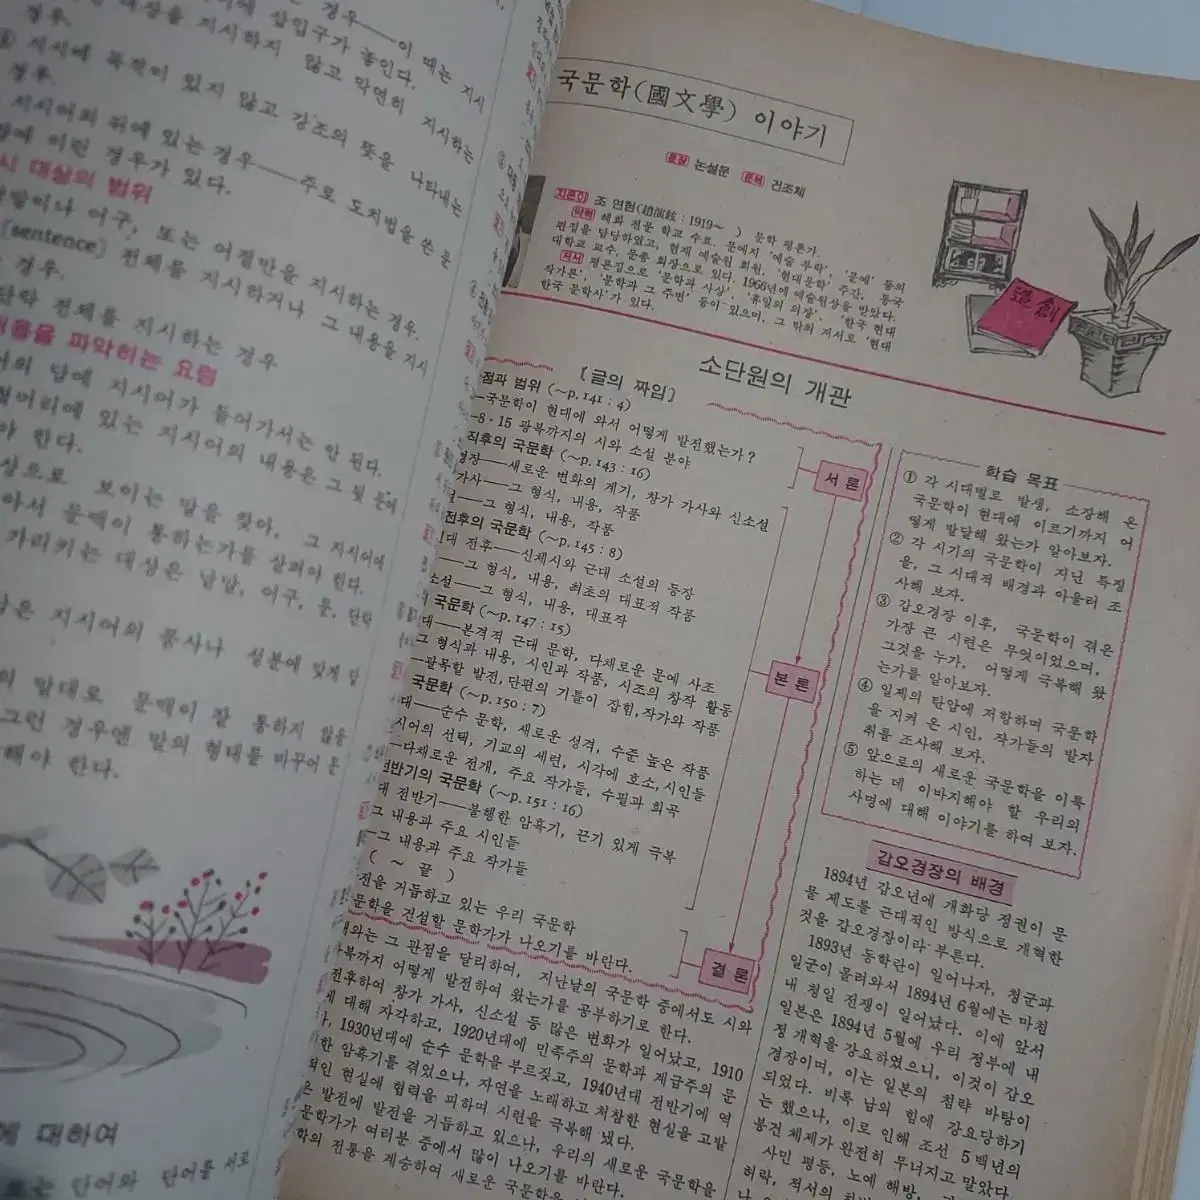 경우——이 때는 지시
삽입구가 놓인다.
지시하지 않고 막연히 지시하는
경우.
지시에 목적이 있지 않고 강조의 뜻을 나타내는
경우.
지시어의 뒤에 있는 경우——주로 도치법을 쓴 문
이런 경우가 있다.
대상의 범위
낱말이나 어구, 또는 어절만을 지시하는 경우.
[sentence] 전체를 지시하거나 그 내용을 지시
경우.
단락 전체를 지시하는 경우
파악하는 요령
답에 지시어가 들어가서는 안 된다.
첫머리에 있는 지시어의 내용은 그 뒷
한다.
보이는 말을 찾아, 그 지시어에
문맥이 통하는가를 살펴야 한다.
가리키는 대상은 낱말, 어구, 문, 단락
지시어의 품사나 성분에 맞게 답
말대로 문맥이 잘 통하지 않을
그런 경우엔 말의 형태를 바꾸어
해야 한다.
대하여
또는 단어와 단어를 서로
국문학(國文學) 이야기
문장 논설문 문체 건조체
지은이 조 연현(趙演鉉 : 1919~ ) 문학 평론가.
약력 혜화 전문 학교 수료. 문예지 '예술 부락', '문예' 등의
편집을 담당하였고, 현재 예술원 회원, '현대문학' 주간, 동국
대학교 교수, 문총 회장으로 있다. 1966년에 예술원상을 받았다.
저서 평론집으로 '문학과 사상', '휴일의 의장', '한국 현대
작가론', '문학과 그 주변' 등이 있으며, 그 밖의 저서로 '현대
한국 문학사'가 있다.
創造
소단원의 개관
[글의 짜임]
점과 범위 (~p.141 : 4)
—국문학이 현대에 와서 어떻게 발전했는가?
—8·15 광복까지의 시와 소설 분야
직후의 국문학 (~p.143 : 16)
경장——새로운 변화의 계기, 창가 가사와 신소설
가사——그 형식, 내용, 작품
설——그 형식, 내용, 작품
전후의 국문학 (~p.145 : 8)
대 전후——신체시와 근대 소설의 등장
——그 형식, 내용, 최초의 대표적 작품
소설——그 형식, 내용, 대표작
국문학 (~p.147 : 15)
대——본격적 근대 문학, 다채로운 문예 사조
그 형식과 내용, 시인과 작품, 시조의 창작 활동
—괄목할 발전, 단편의 기틀이 잡힘, 작가와 작품
국문학 (~p.150 : 7)
대——순수 문학, 새로운 성격, 수준 높은 작품
시어의 선택, 기교의 세련, 시각에 호소, 시인들
—다채로운 전개, 주요 작가들, 수필과 희곡
전반기의 국문학 (~p.151 : 16)
대 전반기——불행한 암흑기, 끈기 있게 극복
그 내용과 주요 시인들
—그 내용과 주요 작가들
( ~ 끝 )
전을 거듭하고 있는 우리 국문학
문학을 건설할 문학가가 나오기를 바란다.
서론
본론
결론
와는 그 관점을 달리하여, 지난날의 국문학 중에서도 시와
광복까지 어떻게 발전하여 왔는가를 공부하기로 한다.
전후하여 창가 가사, 신소설 등 많은 변화가 일어났고, 1910
에 대해 자각하고, 1920년대에 민족주의 문학과 계급주의 문
, 1930년대에 순수 문학을 부르짖고, 1940년대 전반기에 역
한 암흑기를 겪었으나, 자연을 노래하고 처참한 현실을 고발
적인 현실에 협력을 피하며 시련을 극복해 냈다.
은 발전에 발전을 거듭하고 있으나, 우리의 새로운 국문학을
문학가가 여러분 중에서 많이 나오기를 바란다.
학의 전통을 계승하여 새로운 국문학을
학습 목표
① 각 시대별로 발생, 소장해 온
국문학이 현대에 이르기까지 어
떻게 발달해 왔는가 알아보자.
② 각 시기의 국문학이 지닌 특징
을, 그 시대적 배경과 아울러 조
사해 보자.
③ 갑오경장 이후, 국문학이 겪은
가장 큰 시련은 무엇이었으며,
그것을 누가, 어떻게 극복해 왔
는가를 알아보자.
④ 일제의 탄압에 저항하며 국문학
을 지켜 온 시인, 작가들의 발자
취를 조사해 보자.
⑤ 앞으로의 새로운 국문학을 이룩
하는 데 이바지해야 할 우리의
사명에 대해 이야기를 하여 보자.
갑오경장의 배경
1894년 갑오년에 개화당 정권이 문
물 제도를 근대적인 방식으로 개혁한
것을 갑오경장이라 부른다.
1893년 동학란이 일어나자, 청군과
일군이 몰려와서 1894년 6월에는 마침
내 청일 전쟁이 일어났다. 이에 앞서
일본은 1894년 5월에 우리 정부에 내
정 개혁을 강요하였으니, 이것이 갑오
경장이며, 이는 일본의 침략 바탕이
되었다. 비록 남의 힘에 강요당하기
는 했으나, 이로 인해 조선 5백년의
봉건 체제가 완전히 무너지고 말았다.
사민 평등, 노예 해방,
허락, 적서의